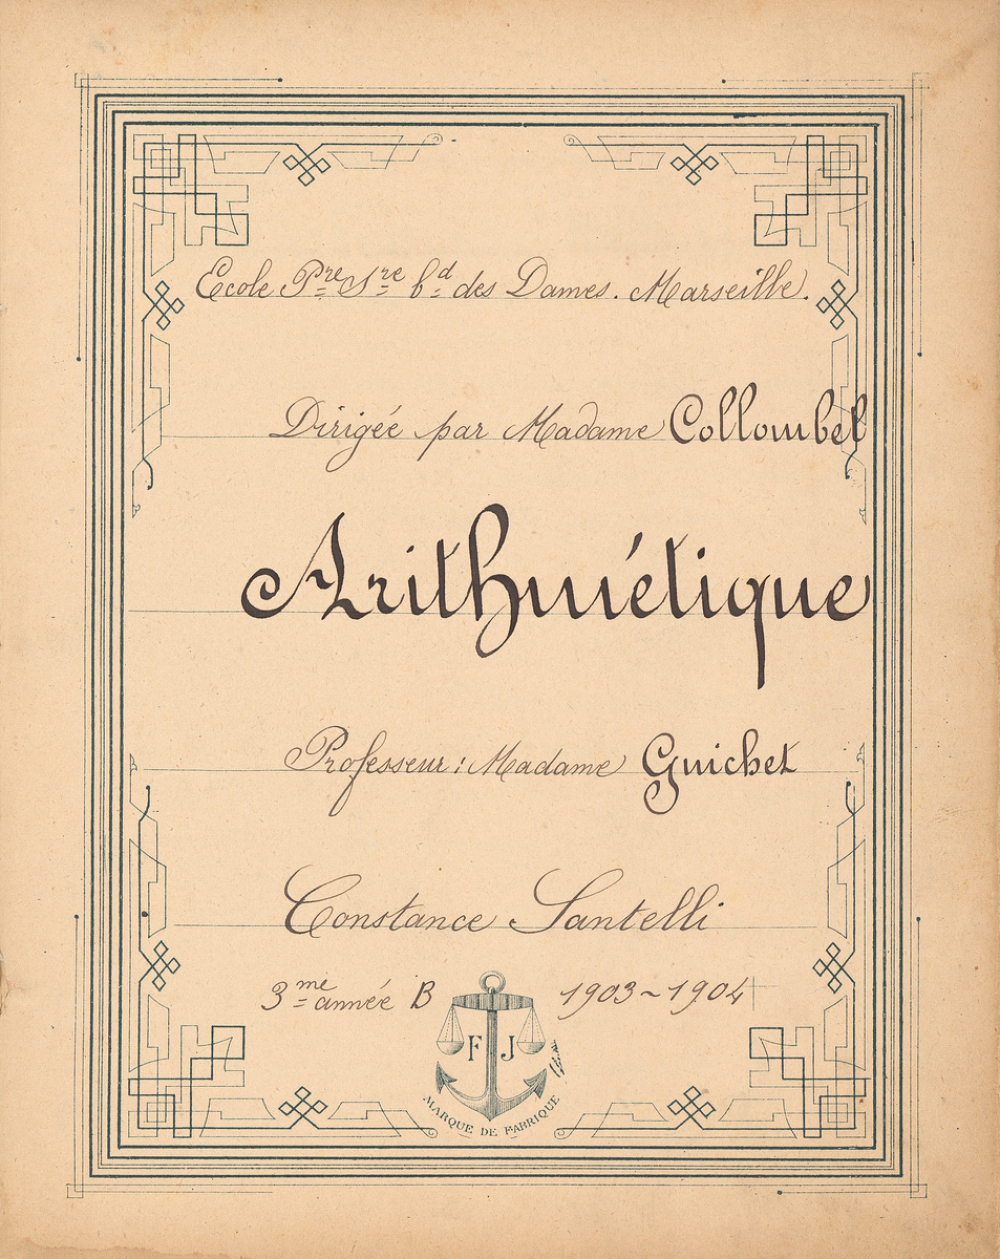 Ecole Pre Sre bd des Dames. Marseille.
Dirigée par Madame Collombel
Arithmétique
Professeur: Madame Guichet
Constance Santelli
3me année B 1903~1904
F J
MARQUE DE FABRIQUE